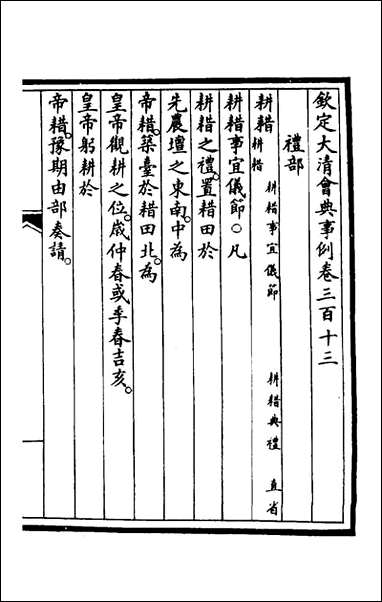 欽定大清會典事例卷三百十三
禮部
耕耤 耕耤事宜儀節 耕耤典禮 直省
耕耤
耕耤事宜儀節○凡
耕耤之禮。置耤田於
先農壇之東南。中為
帝耤。築臺於耤田北。為
皇帝觀耕之位。歲仲春或季春吉亥。
皇帝躬耕於
帝耤。豫期由部奏請。